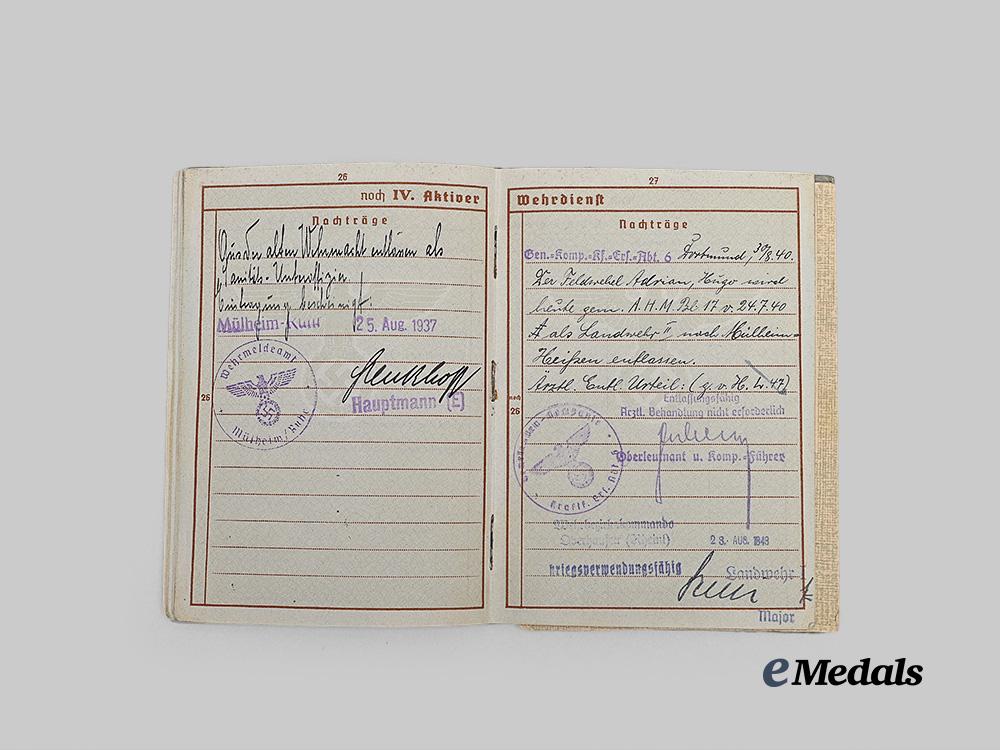 26
noch IV. Aktiver
Nachträge
Aus der alten Wehrmacht entlassen als
Sanitäts-Unteroffizier
Eintragung bescheinigt.
Mülheim-Ruhr 25. Aug. 1937
Wehrmeldeamt
Mülheim/Ruhr
Hauptmann (E)
26
27
Wehrdienst
Nachträge
Gen.-Komp.-Kf.-Ers.-Abt. 6 Dortmund, 30/8.40.
Der Feldwebel Adrian, Hugo wird
heute gem. A.H.M. Bl. 17 v. 24.7.40
als Landwehr II nach Mülheim-
Heißen entlassen.
Ärztl. Entl. Urteil: (g.v.H. L.47)
Entlassungsfähig
Ärztl. Behandlung nicht erforderlich
noch
26
Kraftf. Ers. Abt 6
Oberleutnant u. Komp.-Führer
Wehrbezirkskommando
Oberhausen (Rheinl) 23. AUG. 1943
kriegsverwendungsfähig Landwehr I
Major
eMedals